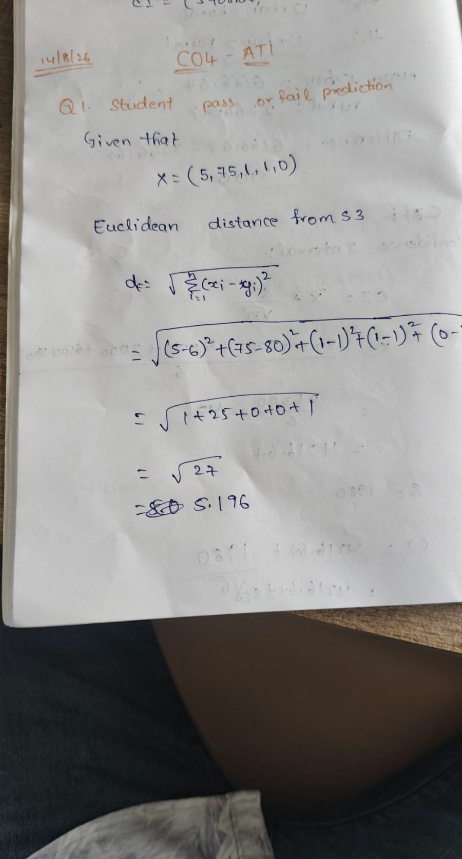 14/8/26
CO4 - AT1
Q1. Student pass or fail prediction
Given that
x = (5, 75, 1, 1, 0)
Euclidean distance from S3
d = √Σ(xi - yi)²
= √(5-6)² + (75-80)² + (1-1)² + (1-1)² + (0-
= √1+25+0+0+1
= √27
= 5.196